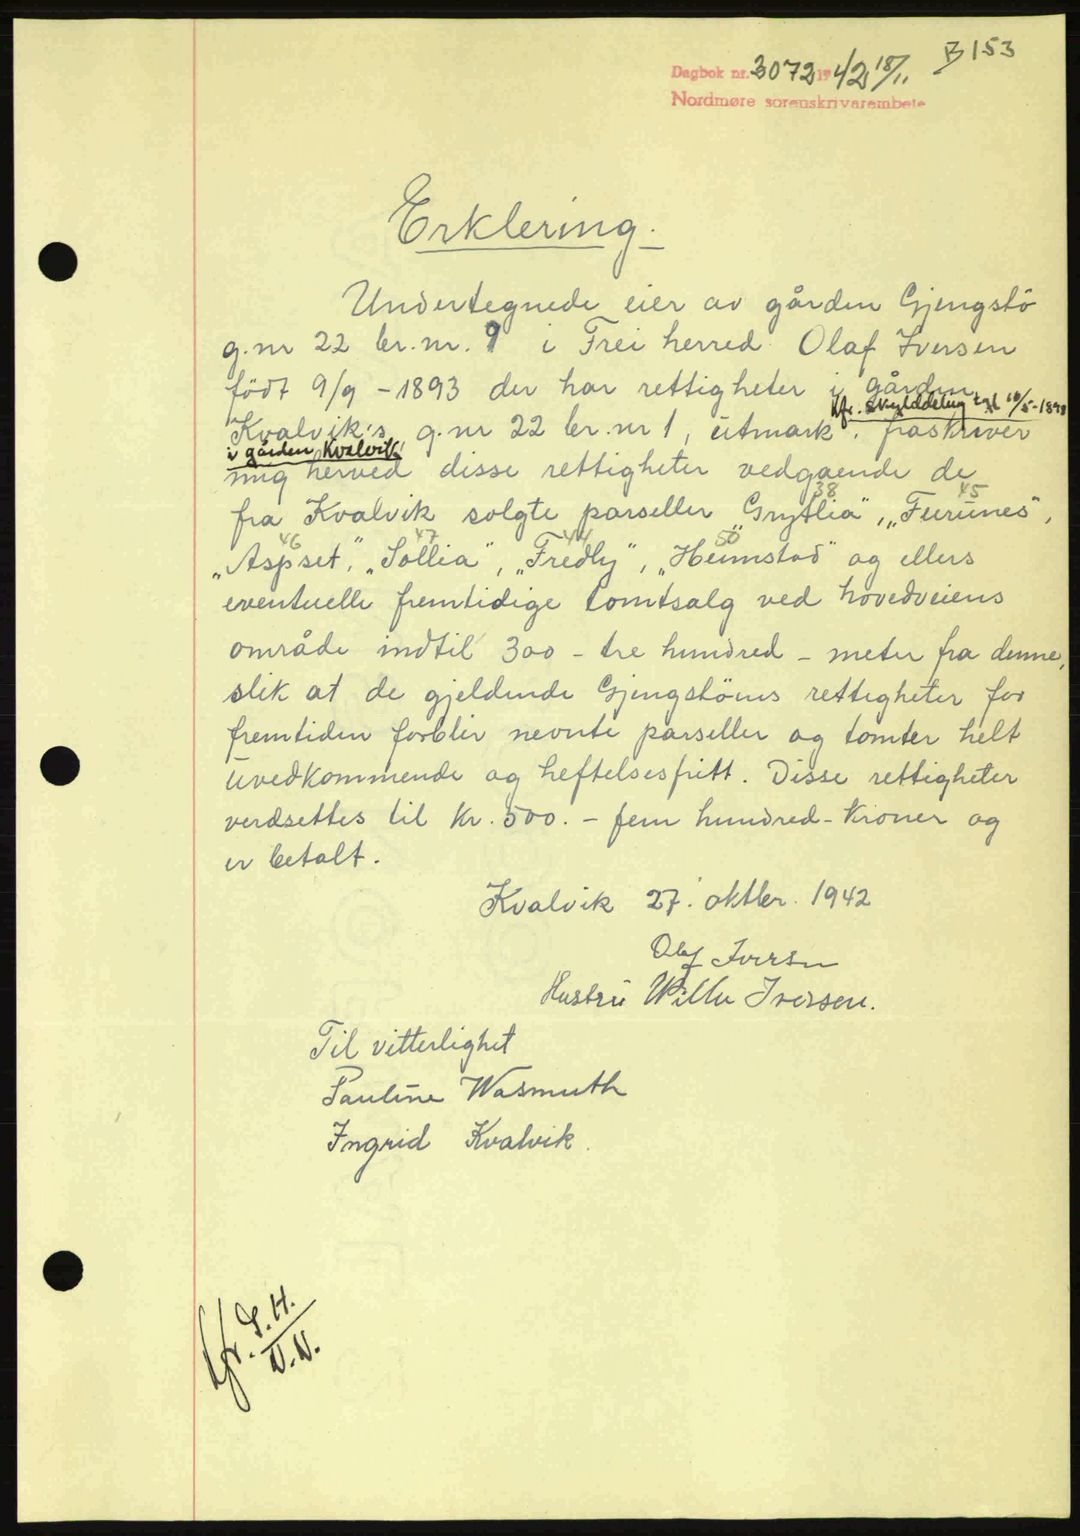 B 153
Dagbok nr. 3072 19 42 18/11
Nordmøre sorenskriverembete
Erklering.
Undertegnede eier av gården Gjengstö
g.nr 22 br.nr. 9 i Frei herred Olaf Iversen
födt 9/9 - 1893 der har rettigheter i gården
kfr. skylddeling tgl 10/5-1890
Kvalvik's g.nr 22 br.nr 1, utmark, fraskriver
i gården Kvalvik
mig herved disse rettigheter vedgående de
38 45
fra Kvalvik solgte parseller „Grytlia", „Furunes",
46 47 44 50
„Aspset", „Sollia", „Fredly", „Heimstad" og ellers
eventuelle fremtidige tomtsalg ved hovedveiens
område indtil 300 - tre hundred - meter fra denne,
slik at de gjeldende Gjengstöens rettigheter for
fremtiden forblir nevnte parseller og tomter helt
uvedkommende og heftelsesfritt. Disse rettigheter
verdsettes til kr. 500. - fem hundred - kroner og
er betalt.
Kvalvik 27. oktbr. 1942
Olaf Iversen
Hustru Willa Iversen.
Til vitterlighet
Pauline Wasmuth
Ingrid Kvalvik.
kfr. S.H.
N.N.